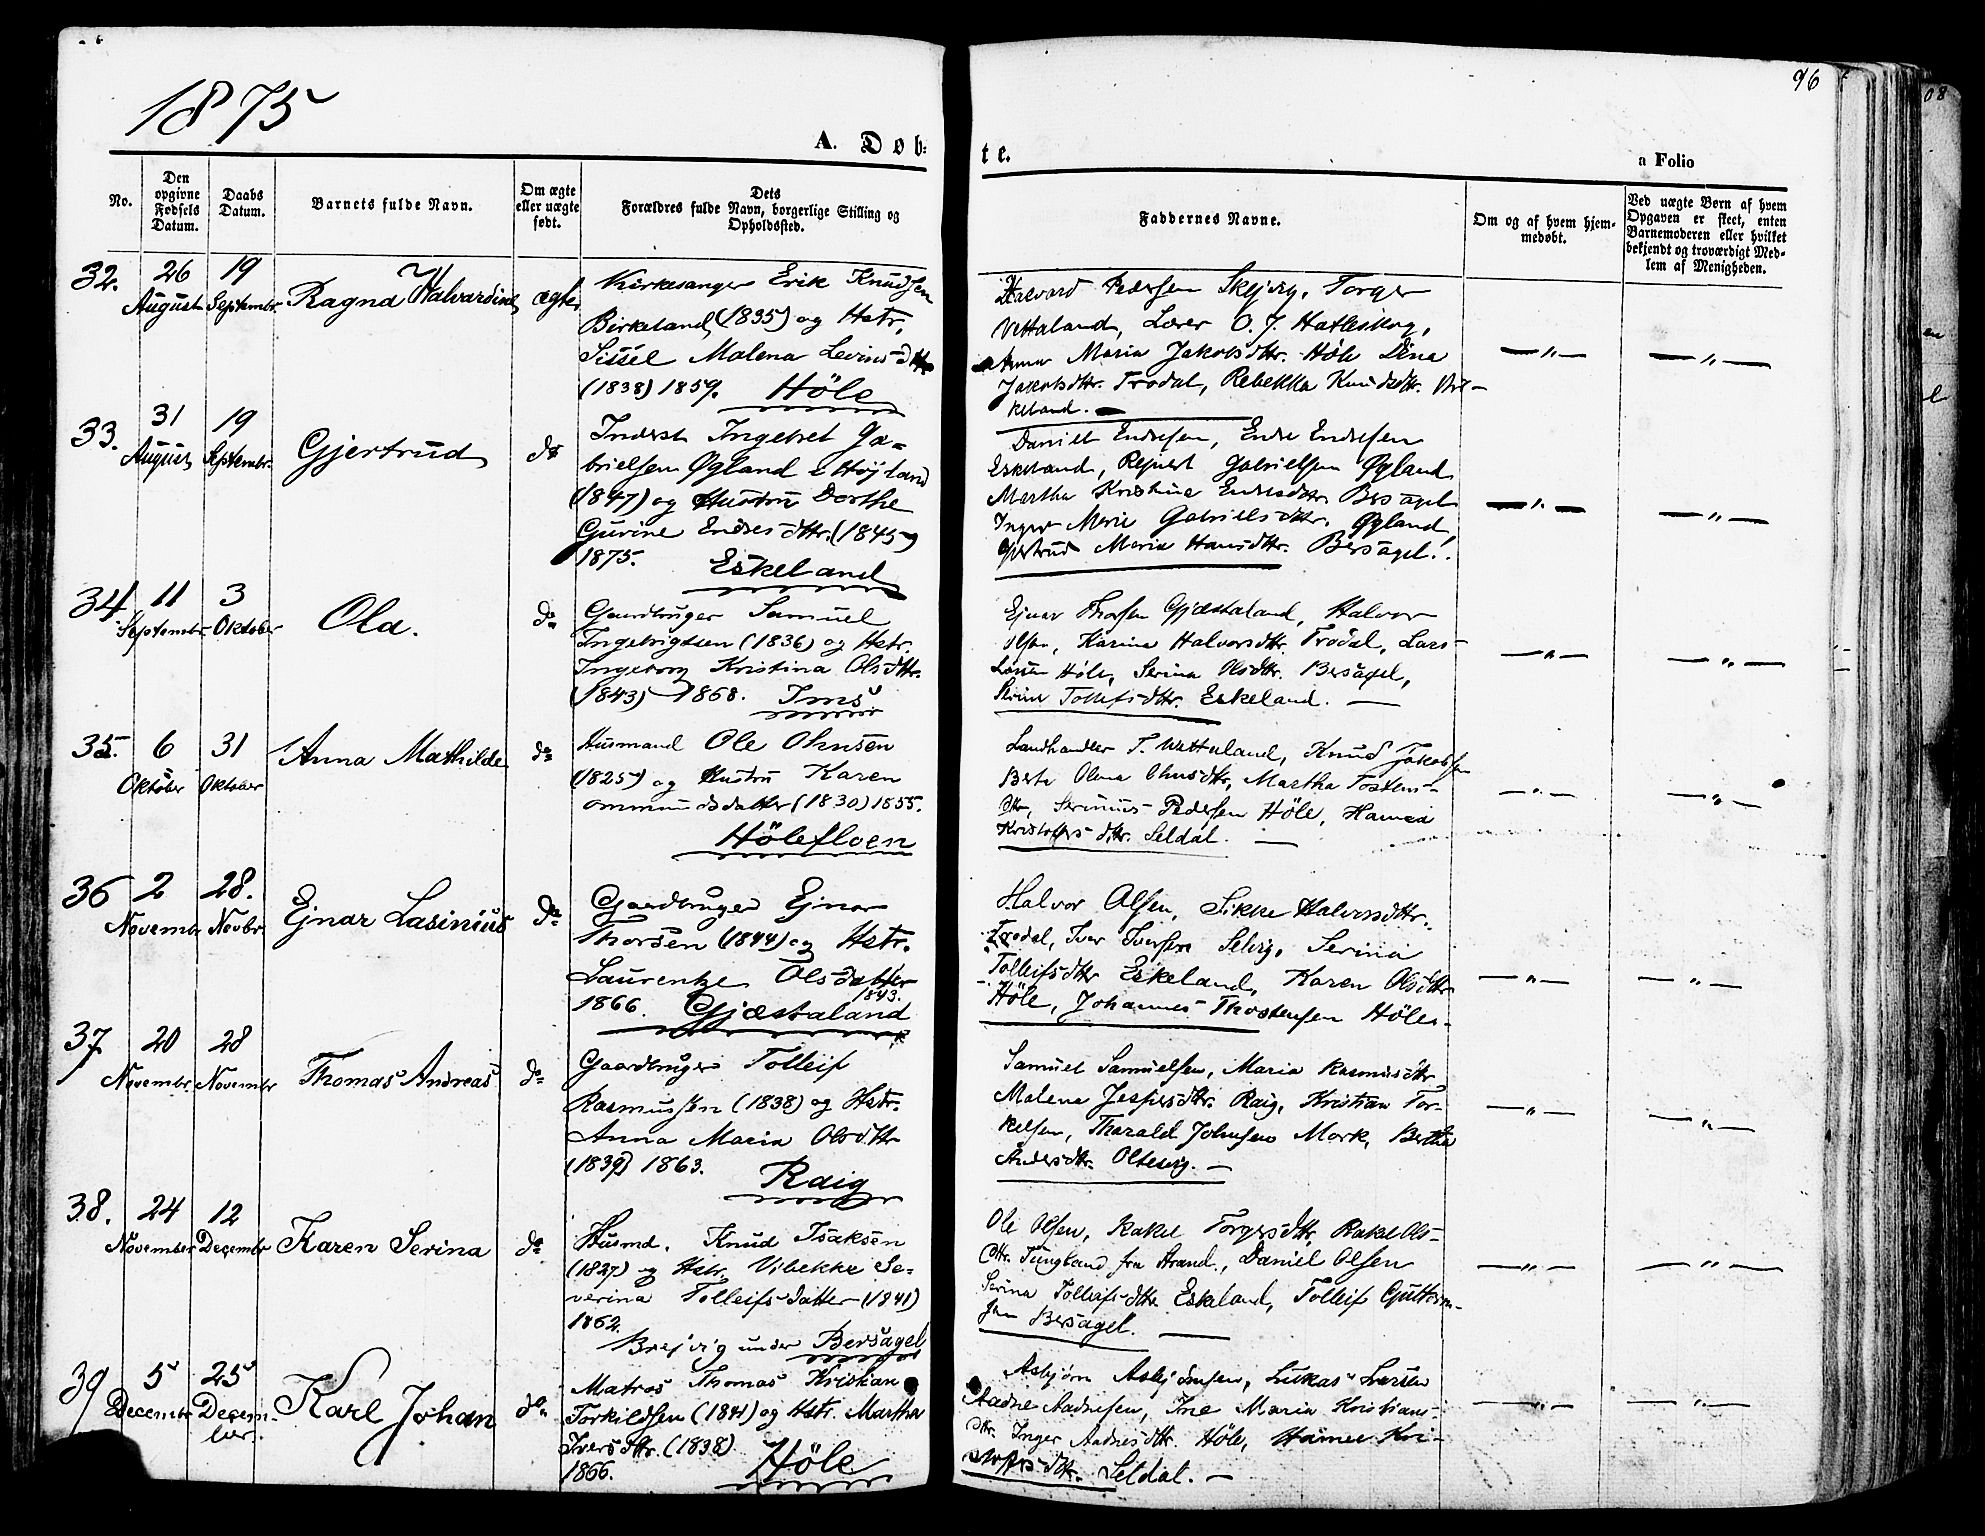 1875
96
A. Døb-
te.
a Folio
No.
Den
opgivne
Fødsels
Datum.
Daabs
Datum.
Barnets fulde Navn.
Om ægte
eller uægte
født.
Dets
Forældres fulde Navn, borgerlige Stilling og
Opholdssted.
Faddernes Navne.
Om og af hvem hjem-
medøbt.
Ved uægte Børn af hvem
Opgaven er skeet, enten
Barnemoderen eller hvilket
bekjendt og troværdigt Med-
lem af Menigheden.
32.
26
August
19
Septembr.
Ragna Halvardine
ægte
Kirkesanger Erik Knudsen
Birkeland, (1835) og Hstr.
Sissel Malena Levinsdttr
(1838) 1859. Höle
Halvard Pedersen Skjevig, Torger
Vettaland, Lærer O. J. Hatleskog,
Anna Maria Jakobsdttr. Höle Dina
Jakobsdttr. Trodal, Rebekka Knudsdttr. Bir-
keland.
33.
31
August
19
Septembr.
Gjertrud
do
Inderst Ingebret Ga-
brielsen Øgland i Høyland
(1847) og Hustru Dorthe
Gurine Endresdttr. (1845)
1875. Eskeland
Daniel Endresen, Endre Endresen
Eskeland, Rejnert Gabrielsen Øgland
Martha Kristine Endresdttr. Bersagel
Inger Marie Gabrielsdttr. Øgland
Gjertrud Maria Hansdttr. Bersagel.
34
11
Septembr.
3
Oktober
Ola.
do
Gaardbruger Samuel
Ingebrigtsen (1836) og Hstr.
Ingeborg Kristina Olsdttr.
(1843) 1868. Ims
Ejnar Thorsen Gjæstaland, Halvor
Olsen, Karina Halvorsdttr. Trodal, Lars
Höle, Serina Olsdttr. Bersagel,
Serine Tollefsdttr. Eskeland.
35.
6
Oktober
31
Oktober
Anna Mathilde
do
Husmand Ole Ohnsen
(1825) og Hustru Karen
(1830) 1855.
Hölefloen
Landhandler T. Wettaland, Knud Jakobsen
Berte Olena Ohnsdttr, Martha Tostens-
dttr, Pedersen Höle, Hanna
Kristofersdttr. Seldal.
36
2
Novembr
28.
Novbr.
Ejnar Lasinius
do
Gaardbruger Ejnar
Thorsen (1844) og Hstr.
Laurentze Olsdatter
1843.
1866. Gjæstaland
Halvor Olsen, Sikke Halvorsdttr.
Trodal, Iver Iversen Selvig, Serina
Tolleifsdttr Eskeland, Karen Olsdttr
Höle, Johannes Thostensen Höle.
37
20
Novembr.
28
Novembr
Thomas Andreas
do
Gaardbruger Tolleif
Rasmussen (1838) og Hstr.
Anna Maria Olsdttr
(1839) 1863. Raig
Samuel Samuelsen, Maria Rasmusdttr
Malena Jespersdttr. Raig, Kristian Tor-
kelsen, Tharald Johnsen Mork, Bertha
Andersdttr. Oltesvig.
38.
24
November
12
Decembr
Karen Serina
do
Husmd. Knud Isaksen
(1827) og Hstr. Vibekke Se-
verina Tolleifsdatter (1841)
1862.
Brejvig under Bersagel
Ole Olsen, Rakel Torgersdttr, Rakel Ols-
dttr. Tungland fra Strand., Daniel Olsen
Serina Tolleifsdttr Eskeland, Tolleif Guttorm-
sen Bersagel.
39
5
Decembr
25
Decem-
ber.
Karl Johan
do
Matros Thomas Kristian
Torkildsen (1841) og Hstr. Martha
Iversdttr. (1838)
1866. Höle
Asbjørn Asbjørnsen, Lukas Larsen
Aadne Aadnesen, Ine Maria Kristians-
dttr. Inger Aadnesdttr. Höle, Hanne Kri-
stoffersdttr. Seldal.